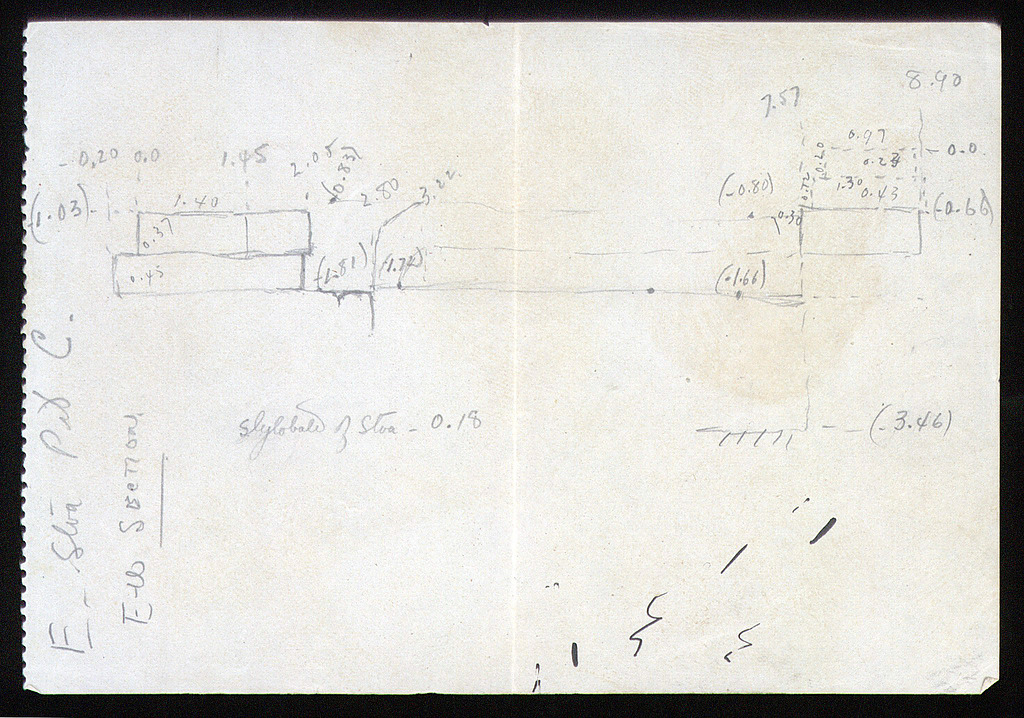 8.90
7.57
-0.20 0.0 1.45 2.05
(0.83)
2.80
3.22
0.97
0.0
0.20
0.23
1.30
0.43
0.72
(-0.80)
0.30
(-0.66)
(1.03)
1.40
0.37
0.45
(1.81)
(1.74)
(-1.66)
Stylobate of Stoa - 0.18
(-3.46)
E - Stoa Pit C.
E-W Section